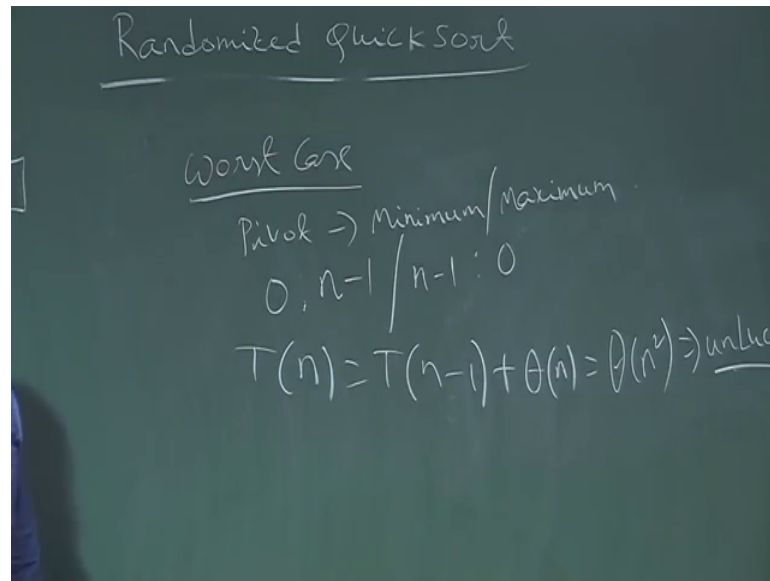 Randomized Quicksort
Worst Case
Pivot → Minimum/Maximum
0 : n-1 / n-1 : 0
T(n) = T(n-1) + θ(n) = θ(n²) ⇒ unLuc